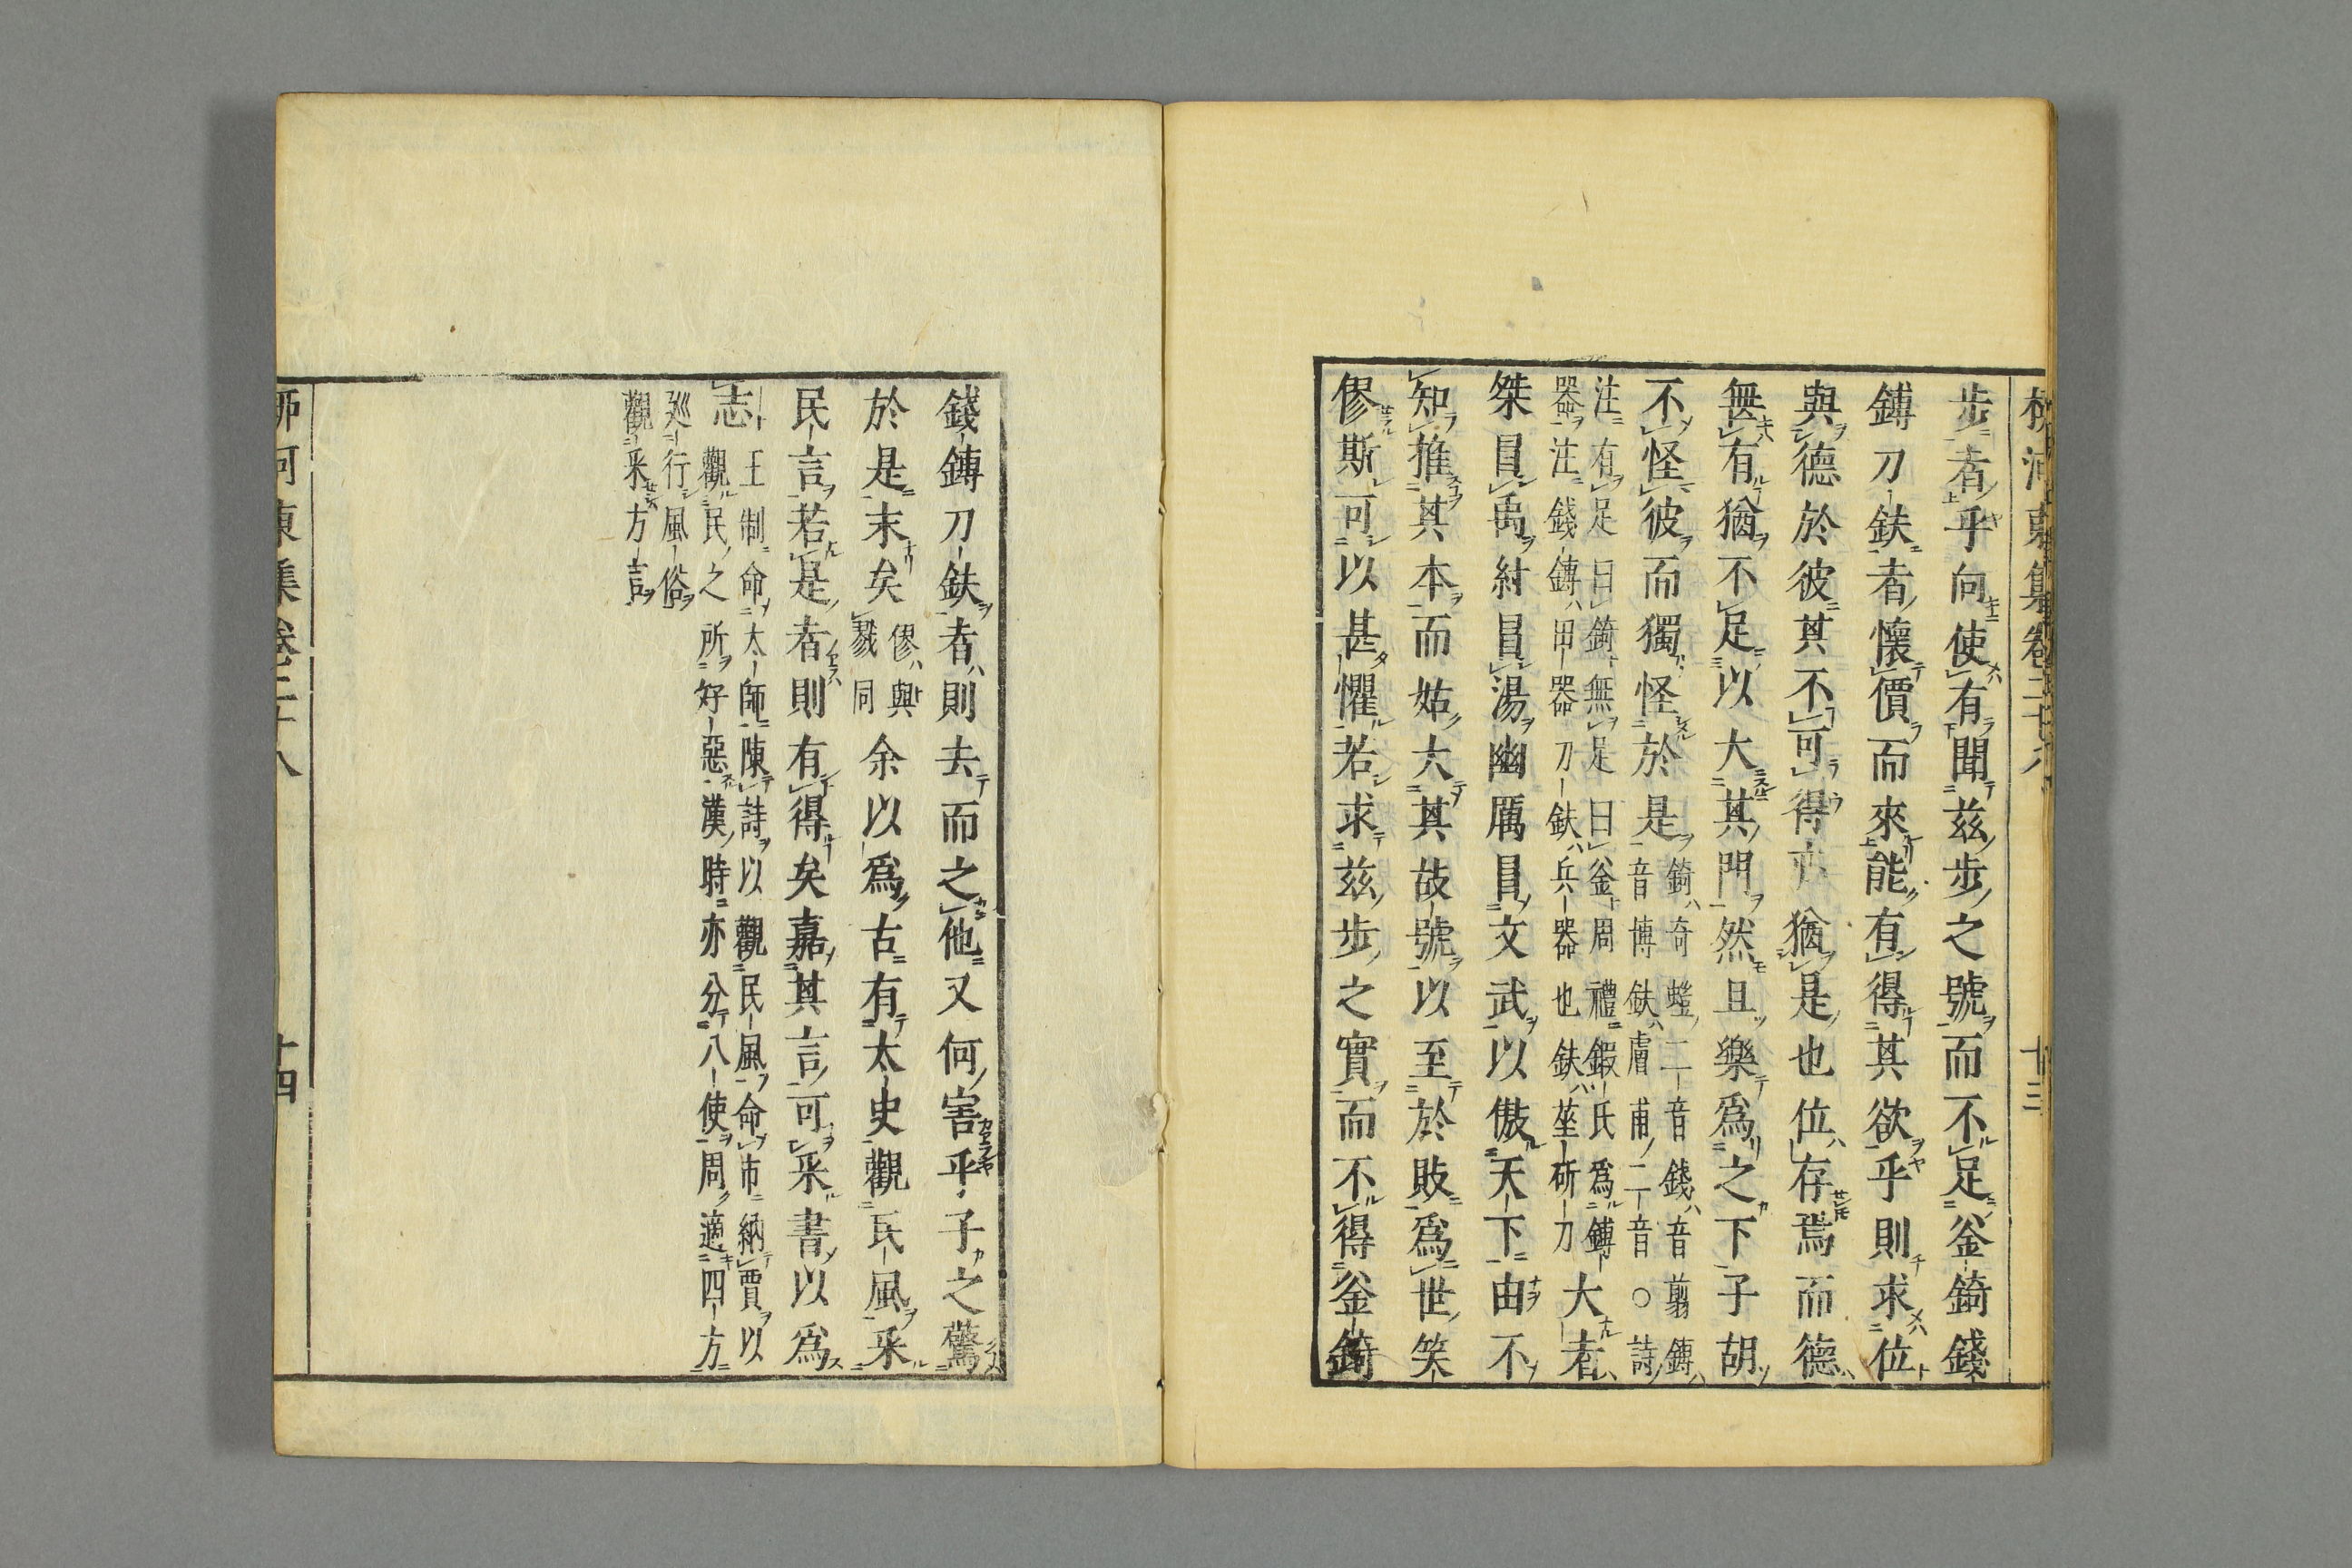 柳河東集卷二十八　十三
步者乎向使有聞茲步之號而不足釜錡錢
鎛刀鈇者懷價而來能有得其欲乎則求位
與德於彼其不可得亦猶是也位存焉而德
無有猶不足以大其門然且樂爲之下子胡
不怪彼而獨怪於是
錡奇螘二音錢音翦鎛
音博鈇膚甫二音○詩
注有足曰錡無足曰釜周禮鍜氏爲鎛
器注錢鎛田器刀鈇兵器也鈇莝斫刀
大者
桀冒禹紂冒湯幽厲冒文武以傲天下由不
知推其本而姑大其故號以至於敗爲世笑
僇斯可以甚懼若求茲步之實而不得釜錡
錢鎛刀鈇者則去而之他又何害乎子之驚
於是末矣
僇與
戮同
余以爲古有太史觀民風采
民言若是者則有得矣嘉其言可采書以爲
志
王制命太師陳詩以觀民風命市納賈以
觀民之所好惡漢時亦分八使周適四方
巡行風俗
觀采方言
柳河東集卷二十八　十四